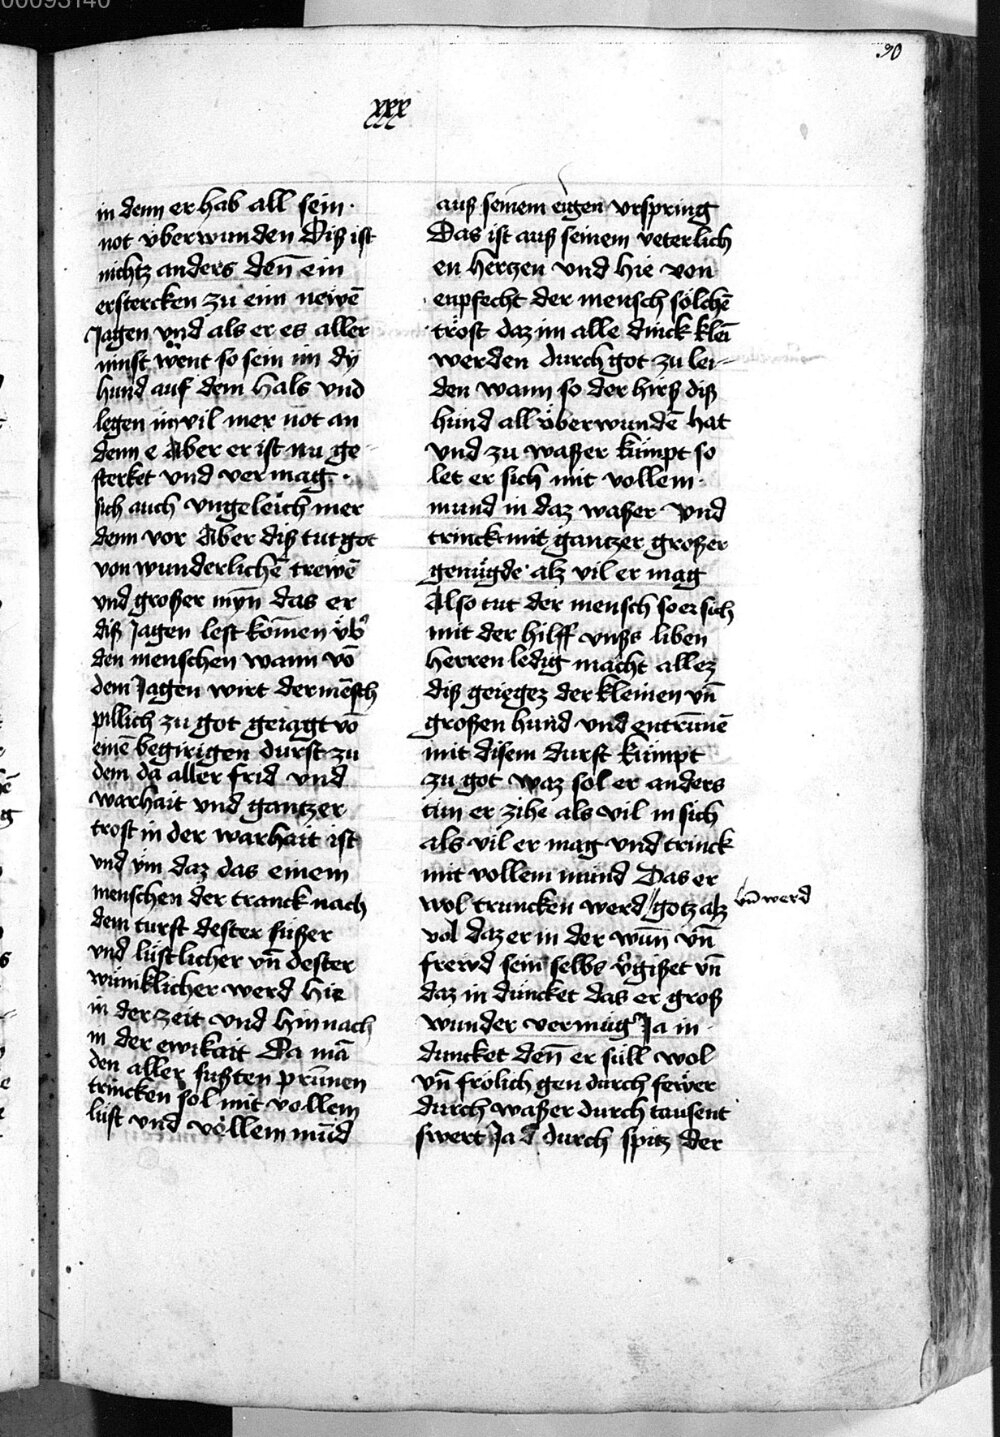 00093140
90
xxx
in denn er hab all sein
not vberwunden Diß ist
nichtz anders den̄ ein
erstercken zu eim newē
Jagen vnd als er es aller
minst wēnt so sein im dy
hund auf dem hals vnd
legen im vil mer not an
denn e Aber er ist nu ge
sterket vnd vermag
sich auch vngeleich mer
denn vor Aber diß tut got
von wunderlichē trewē
vnd großer myn̄ das er
diß Jagen lest kom̄en vb̕
den menschen wann vō
dem Jagen wirt der mēsch
pillich zu got geiagt vō
einē begirigen durst zu
dem da aller frid vnd
warhait vnd gantzer
trost in der warhait ist
vnd vm daz das einem
menschen der tranck nach
dem turst dester süßer
vnd lüstlicher vn̄ dester
wūniklicher werd hie
in der zeit vnd hinnach
in der ewikait Da mā
den aller sußten prūnen
trincken sol mit vollem
lust vnd vollem mūd
auß seinem eigen vrspring
Das ist auß seinem veterlich
en herczen vnd hie von
enpfecht der mensch sölchē
tröst daz im alle dinck klei
werden durch got zu lei-
den wann so der hirß diß
hund all vberwundē hat
vnd zu waßer kümpt so
let er sich mit vollem
mund in daz waßer vnd
trinckt mit gantzer großer
genügde alz vil er mag
Also tut der mensch so er sich
mit der hilff vnßs liben
herren ledig macht allez
diß geiegez der kleinen vn̄
großen hund vnd entrunē
mit disem durst kumpt
zu got waz sol er anders
tun er zihe als vil in sich
als vil er mag vnd trinck
mit vollem mund Das er
wol truncken werd // gotz alz // vn̄ werd
vol daz er in der wun̄ vn̄
frewd sein selbs v̕gißet vn̄
daz in duncket das er groß
wunder vermüg Ja in
duncket den̄ er süll wol
vn̄ frölich gen durch fewer
durch waßer durch tausent
swert Ja d durch spitz der